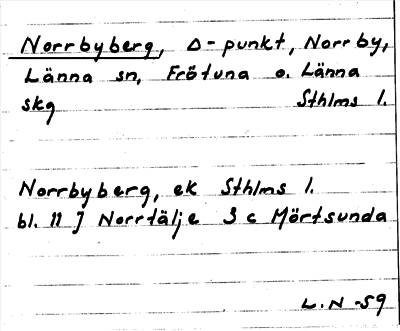 Norrbyberg, Δ-punkt, Norrby,
Länna sn, Frötuna o. Länna
skg Sthlms l.
Norrbyberg, ek Sthlms l.
bl. 11 J Norrtälje 3 c Mörtsunda
L.N -59